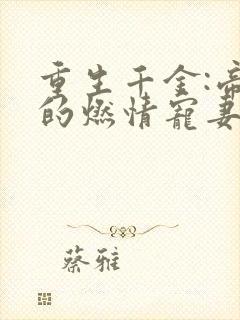 重生千金:帝
的燃情宠妻
蔡雅